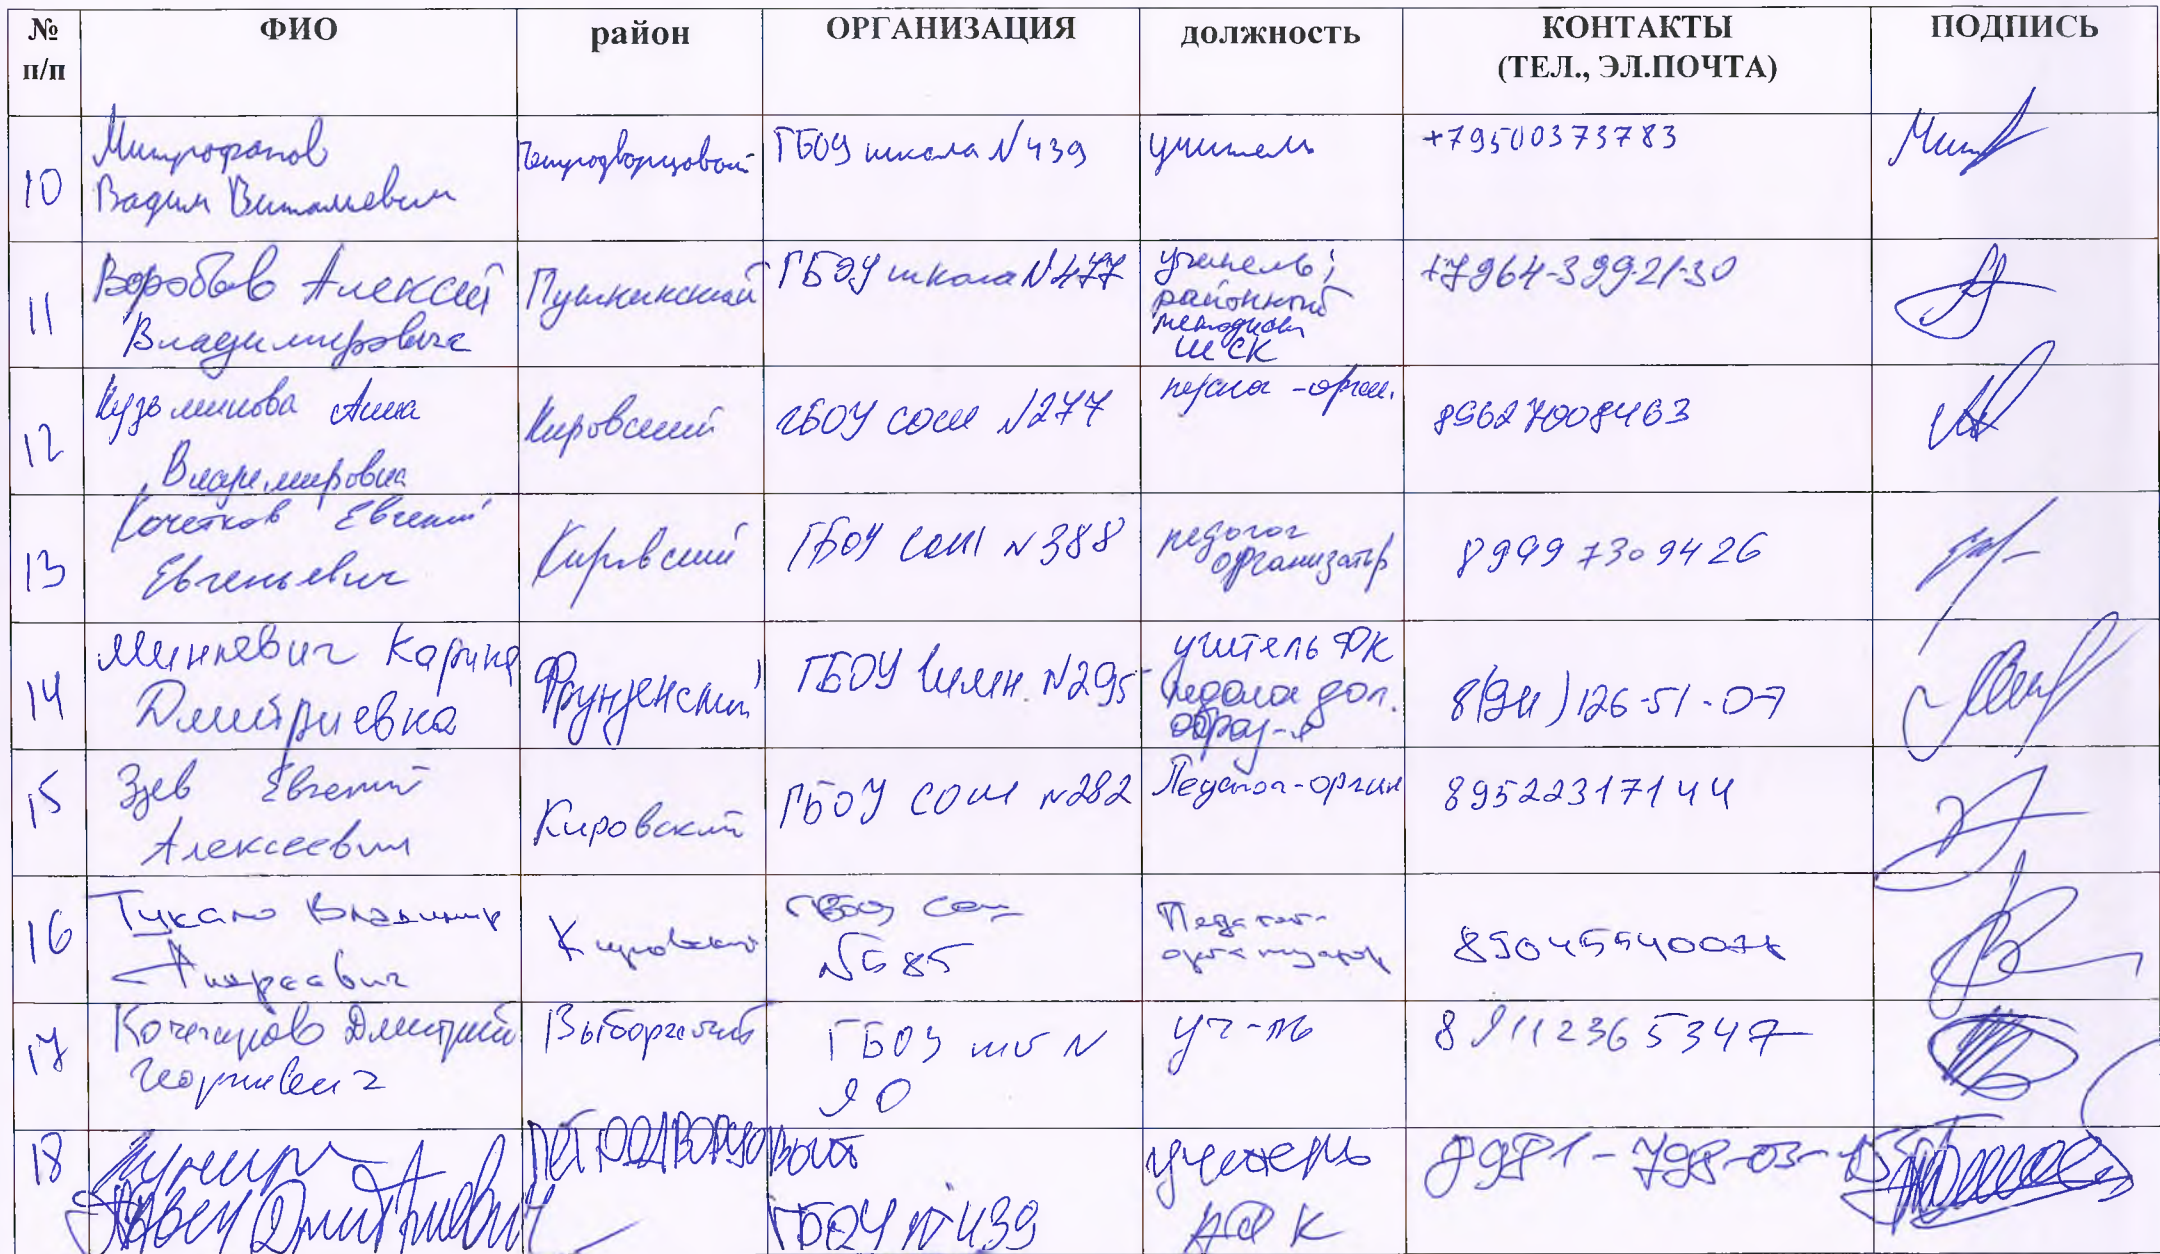 № п/п ФИО район ОРГАНИЗАЦИЯ должность КОНТАКТЫ (ТЕЛ., ЭЛ.ПОЧТА) ПОДПИСЬ
10 Митрофанов Вадим Витальевич Петродворцовый ГБОУ школа №439 учитель +79500373783
11 Воробьев Алексей Владимирович Пушкинский ГБОУ школа №477 учитель; районный методист ШСК +7964-399-21-30
12 Кузьминова Анна Владимировна Кировский ГБОУ СОШ №277 педагог-орган. 89627008463
13 Кочетков Евгений Евгеньевич Кировский ГБОУ СОШ №388 педагог организатор 89997309426
14 Минкевич Карина Дмитриевна Фрунзенский ГБОУ гимн. №295 учитель ФК педагог доп. образ-я 8(911)126-51-07
15 Зуев Евгений Алексеевич Кировский ГБОУ СОШ №282 Педагог-орган 89522317144
16 Владимир Андреевич Кировский ГБОУ СОШ №585 Педагог-организатор
17 Дмитрий Георгиевич Выборгский ГБОУ шк № 90 уч-ль 89112365347
18 Дмитриевич ПЕТРОДВОРЦОВЫЙ ГБОУ №439 учитель АФК 8981-798-03-